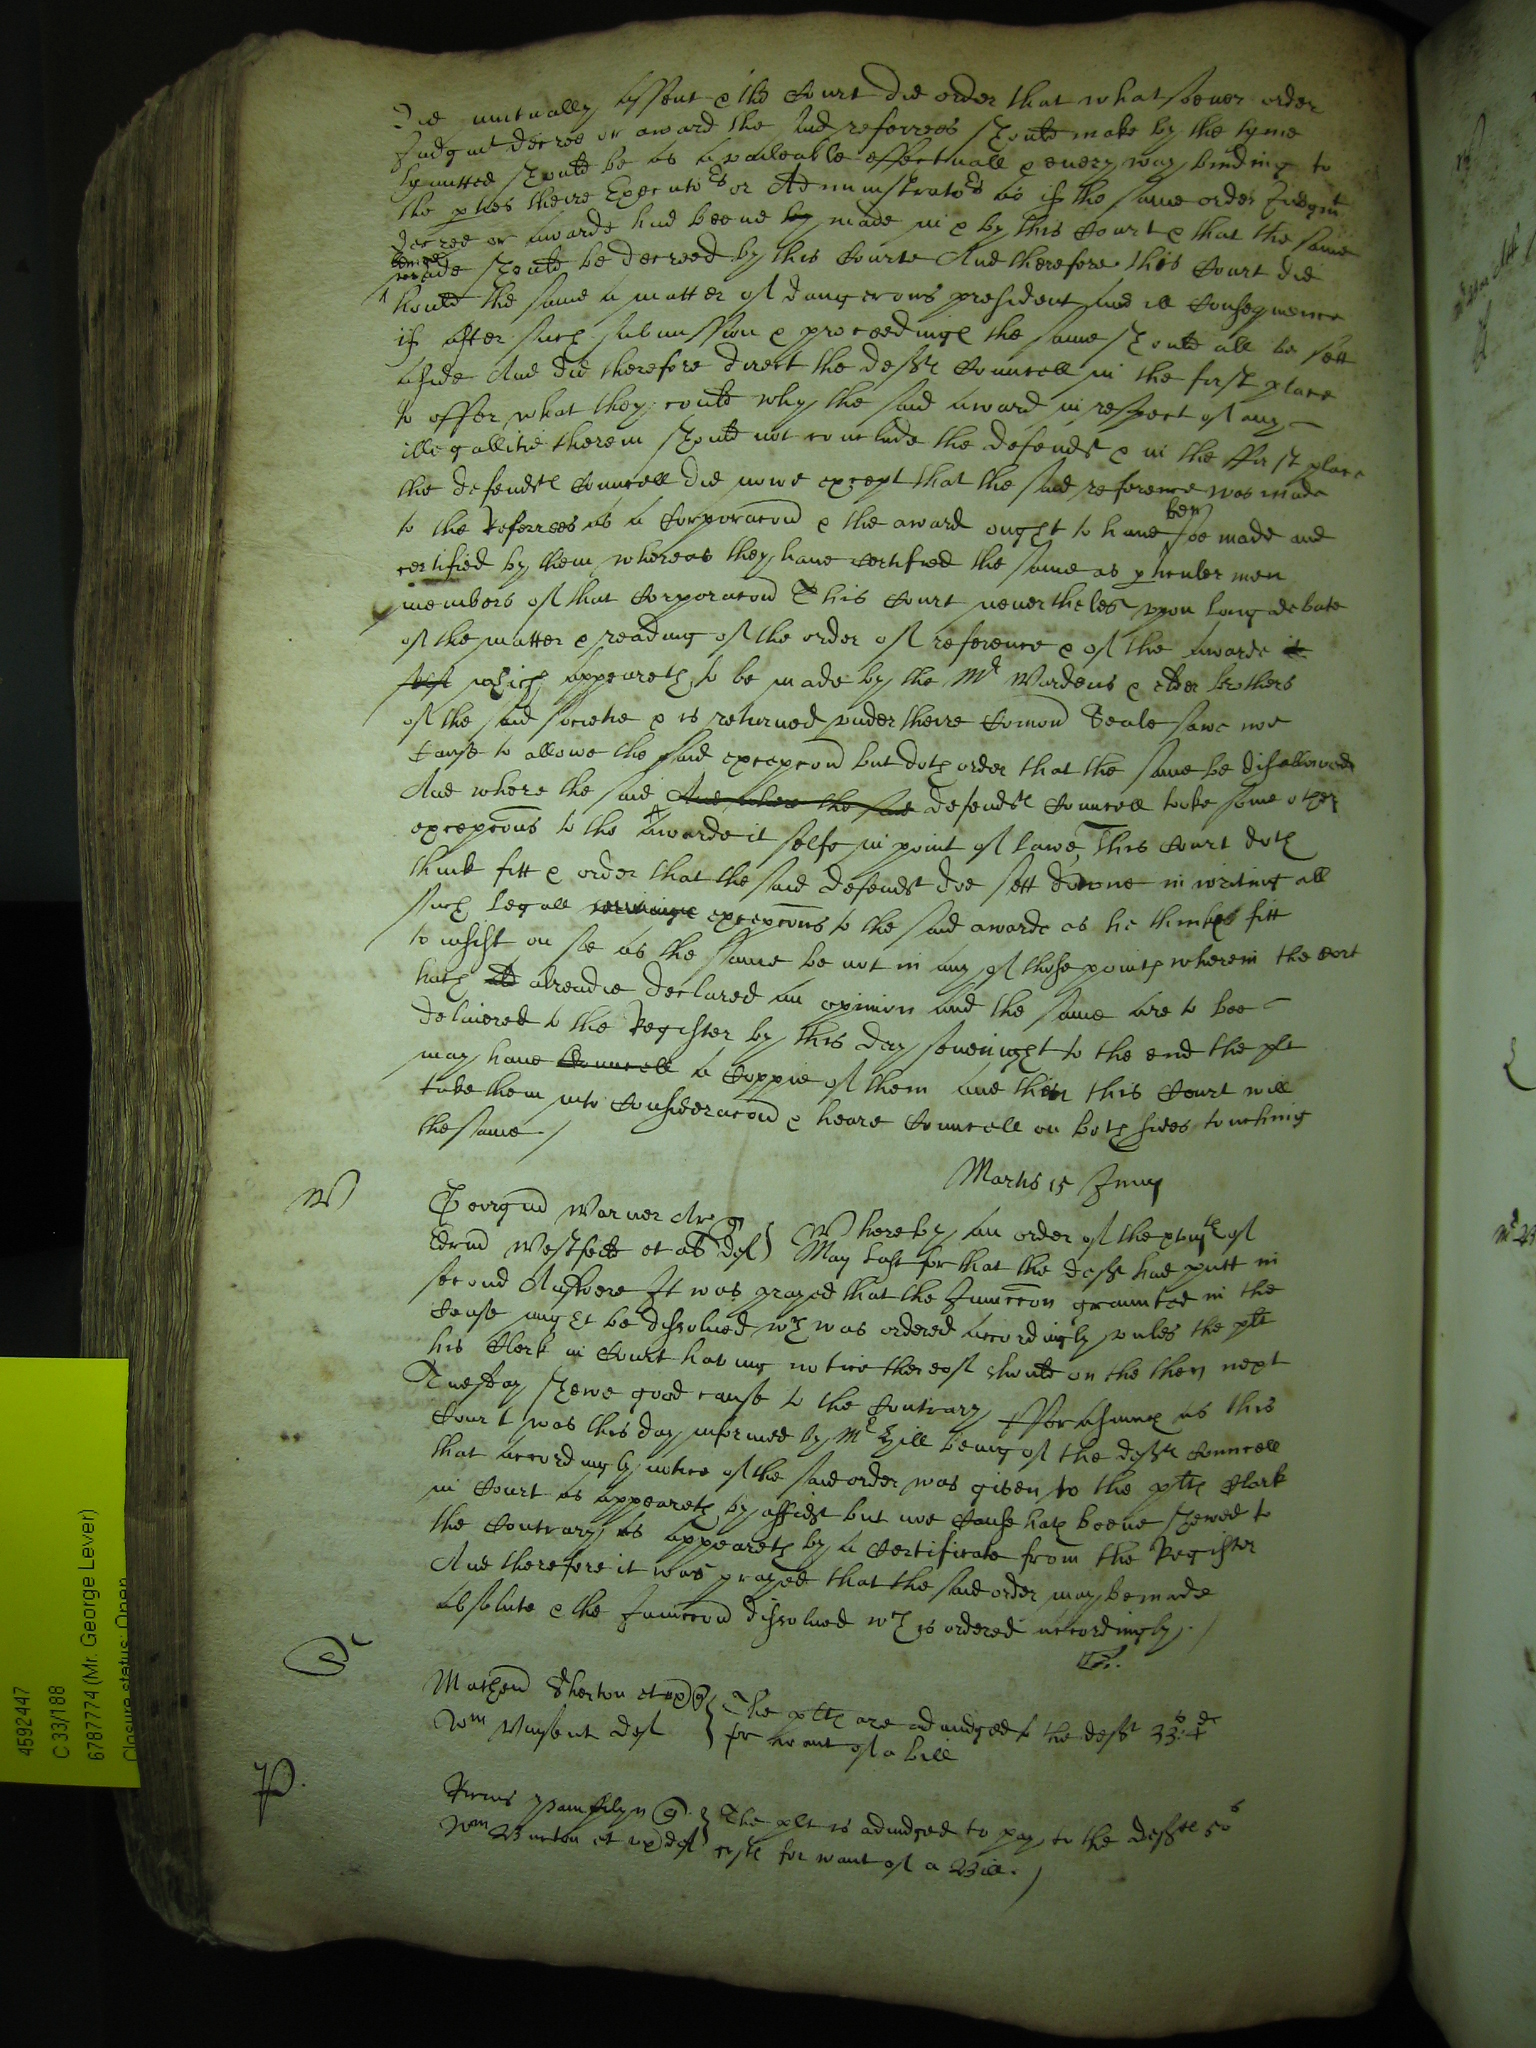 did mutually assent & the Court did order that what soever order
Judgmt decree or award the said referrees should make by the tyme
lymitted should be as availeable effectuall & every way binding to
the pties theire Executors or Administrators as if the same order Judgmt
decree or awarde had beene by made in & by this Court & that the same
being
made should be decreed by this Courte And therefore this Court did
hould the same a matter of dangerous president and ill Consequence
if after such submission & proceedings the same should all be sett
aside And did therefore direct the defts Councell in the first place
to offer what they could why the said award in respect of any
illegallitie therein should not conclude the defendt & in the first place
the defendts Councell did nowe except that the said reference was made
to the Referrees as a Corporacon & the award ought to have soe made and
ben
certified by them whereas they have certified the same as pticuler men
members of that Corporacon This Court nevertheles upon long debate
of the matter & reading of the order of reference & of the awarde it
self which appeareth to be made by the Mr Wardens & elder brothers
of the said societie & is returned under theire Comon Seale sawe noe
Cause to allowe the said excepcon but doth order that the same be disallowed
And where the said And where the said defendts Councell tooke some other
excepcons to the Awarde it selfe in point of lawe This Court doth
think fitt & order that the said defendt doe sett downe in writing all
such legall excepcons to the said awarde as he thinkes fitt
to insist on soe as the same be not in any of those points wherein the Cort
hath alreadie declared an opinion and the same are to bee
delivered to the Register by this day sevenight to the end the plt
may have Councell a Coppie of them and then this Court will
take them into Consideracon & heare Councell on both sides touching
the same./
Martis 15 Junij
W
Georgius Warner Ar q
Edrus Westfeild et al def } Whereby an order of the of
May last for that the deft had putt in
second Answere It was prayed that the Injunccon graunted in the
Cause might be dissolved wch was ordered accordingly unles the plt
his Clerk in Court having notice thereof should on the then next
Tuesday shewe good cause to the Contrary Fforasmuch as this
Court was this day informed by Mr Hill being of the defts Councell
that accordingly notice of the said order was given to the plts Clark
in Court as appeareth by affidt but noe Cause hath beene shewed to
the Contrary as appeareth by a Certificate from the Register
And therefore it was prayed that the said order may be made
absolute & the Injunccon dissolved wch is ordered accordingly./
Matheus Sherton et ux q } The plts are adiudged to the deft 33s 4d
Wm Vinsent def } for want of a bill
P
Pamphlyn q } The plt is adiudged to pay to the defts 50s
Wm Burton et ux def } costs for want of a Bill./
4592447
C 33/188
6787774 (Mr. George Lever)
Closure status: Open